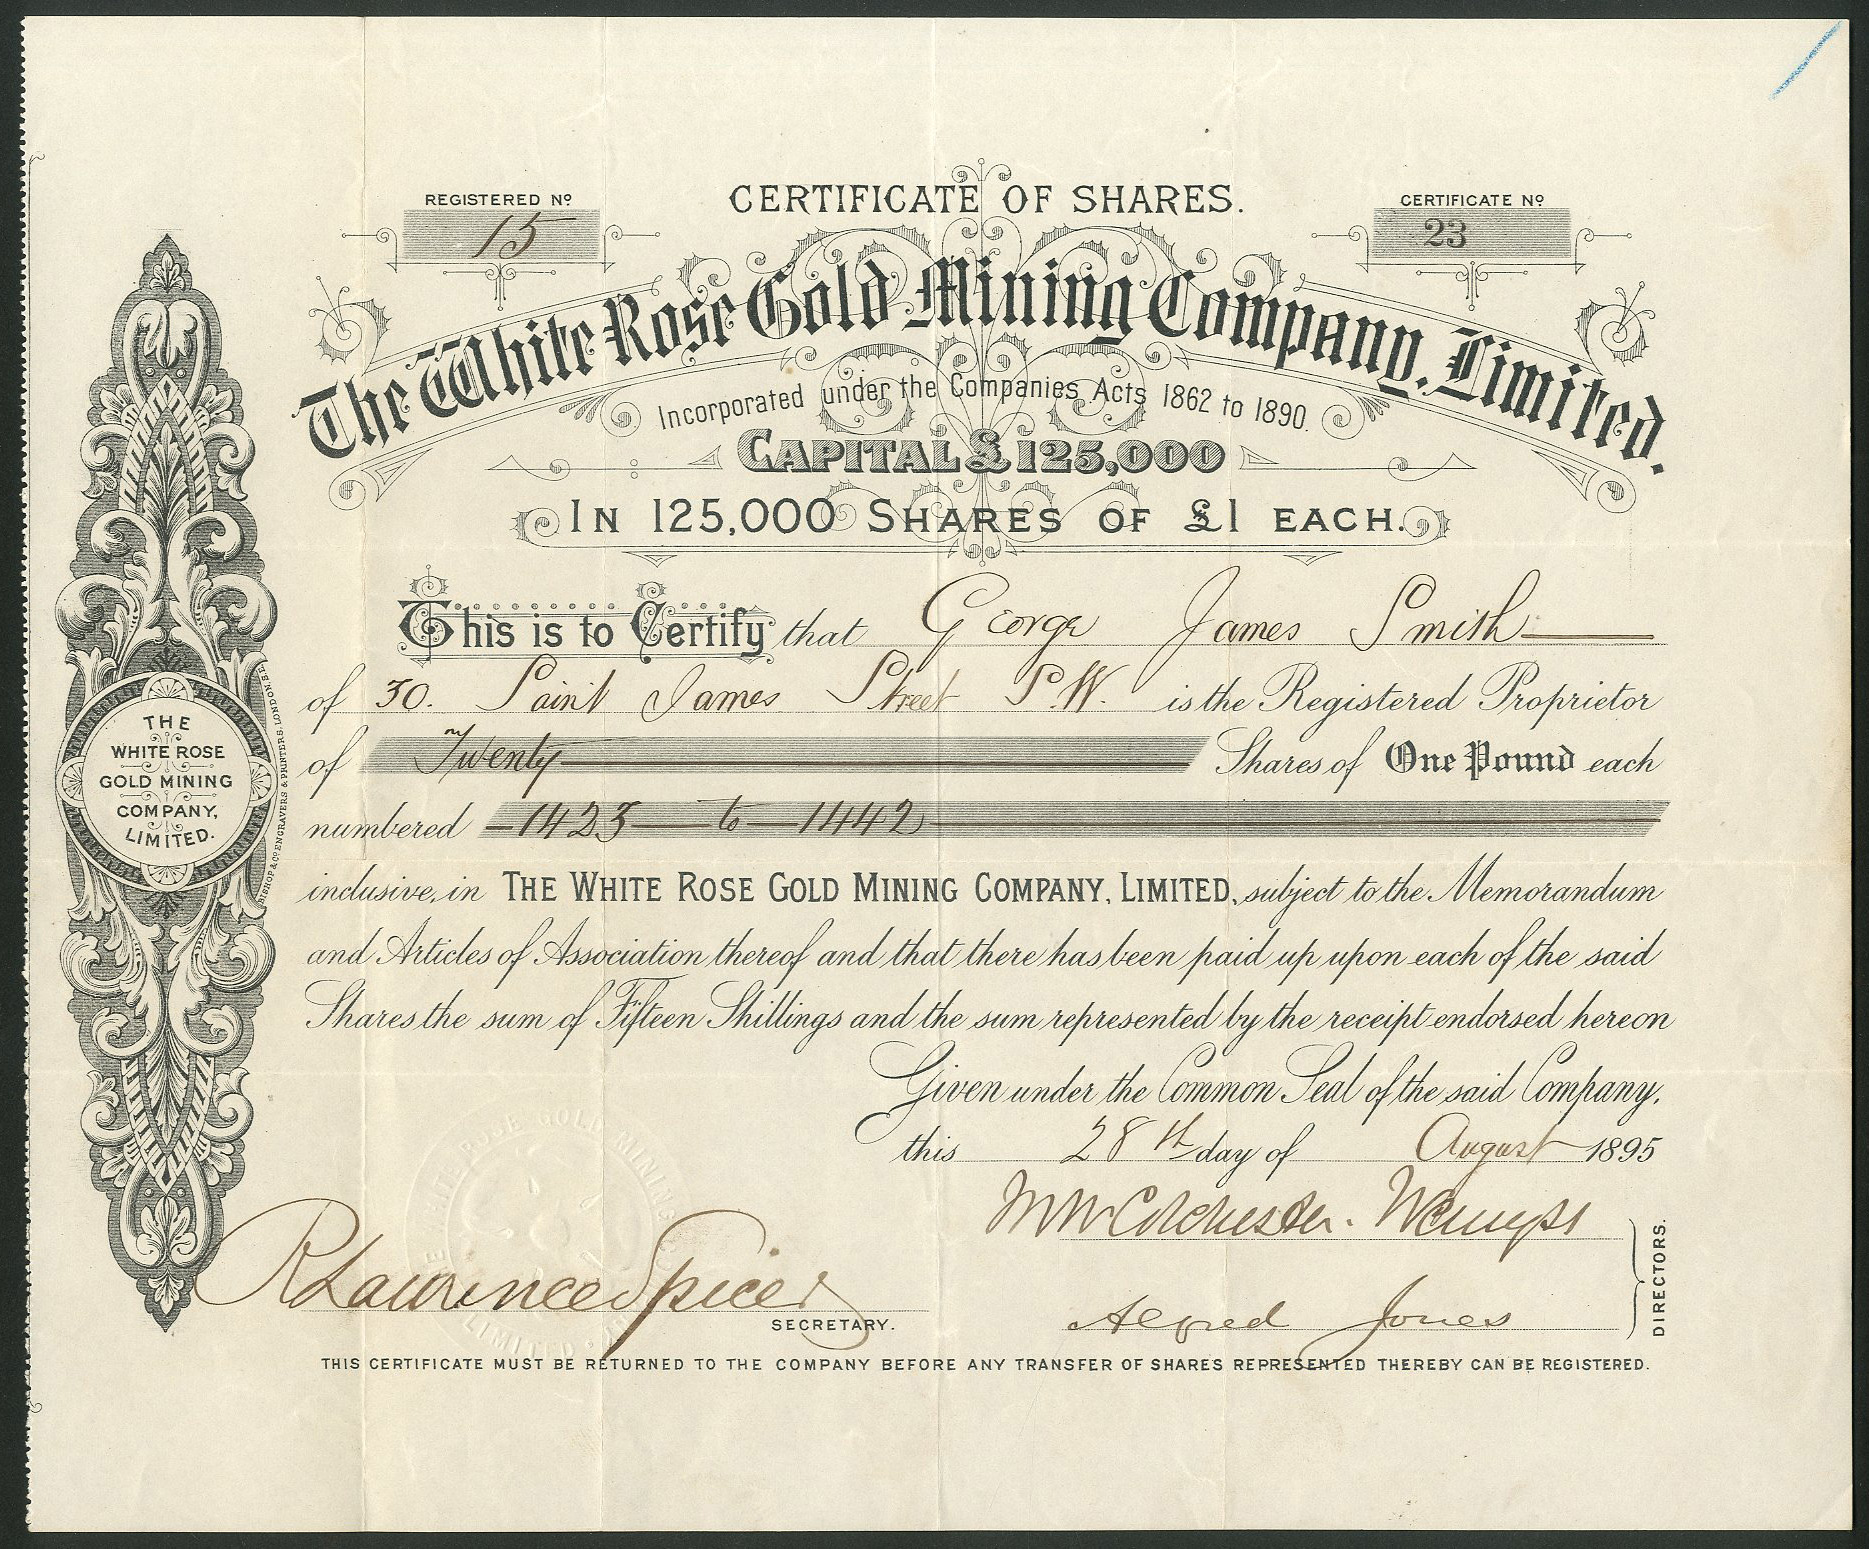 REGISTERED Nº
15
CERTIFICATE OF SHARES.
CERTIFICATE Nº
23
The White Rose Gold Mining Company, Limited.
Incorporated under the Companies Acts 1862 to 1890.
CAPITAL £125,000
IN 125,000 SHARES OF £1 EACH.
This is to Certify that George James Smith
of 30. Saint James Street S.W. is the Registered Proprietor
of Twenty Shares of One Pound each
numbered 1423 to 1442
inclusive, in THE WHITE ROSE GOLD MINING COMPANY, LIMITED, subject to the Memorandum
and Articles of Association thereof and that there has been paid up upon each of the said
Shares the sum of Fifteen Shillings and the sum represented by the receipt endorsed hereon
Given under the Common Seal of the said Company,
this 28th day of August 1895
Colchester. Wemyss
R Lawrence Spicer
SECRETARY.
Alfred Jones
DIRECTORS.
THIS CERTIFICATE MUST BE RETURNED TO THE COMPANY BEFORE ANY TRANSFER OF SHARES REPRESENTED THEREBY CAN BE REGISTERED.
THE
WHITE ROSE
GOLD MINING
COMPANY,
LIMITED.
BISHOP & Cº ENGRAVERS & PRINTERS, LONDON, S.E.
ROSE GOLD MINING
LIMITED